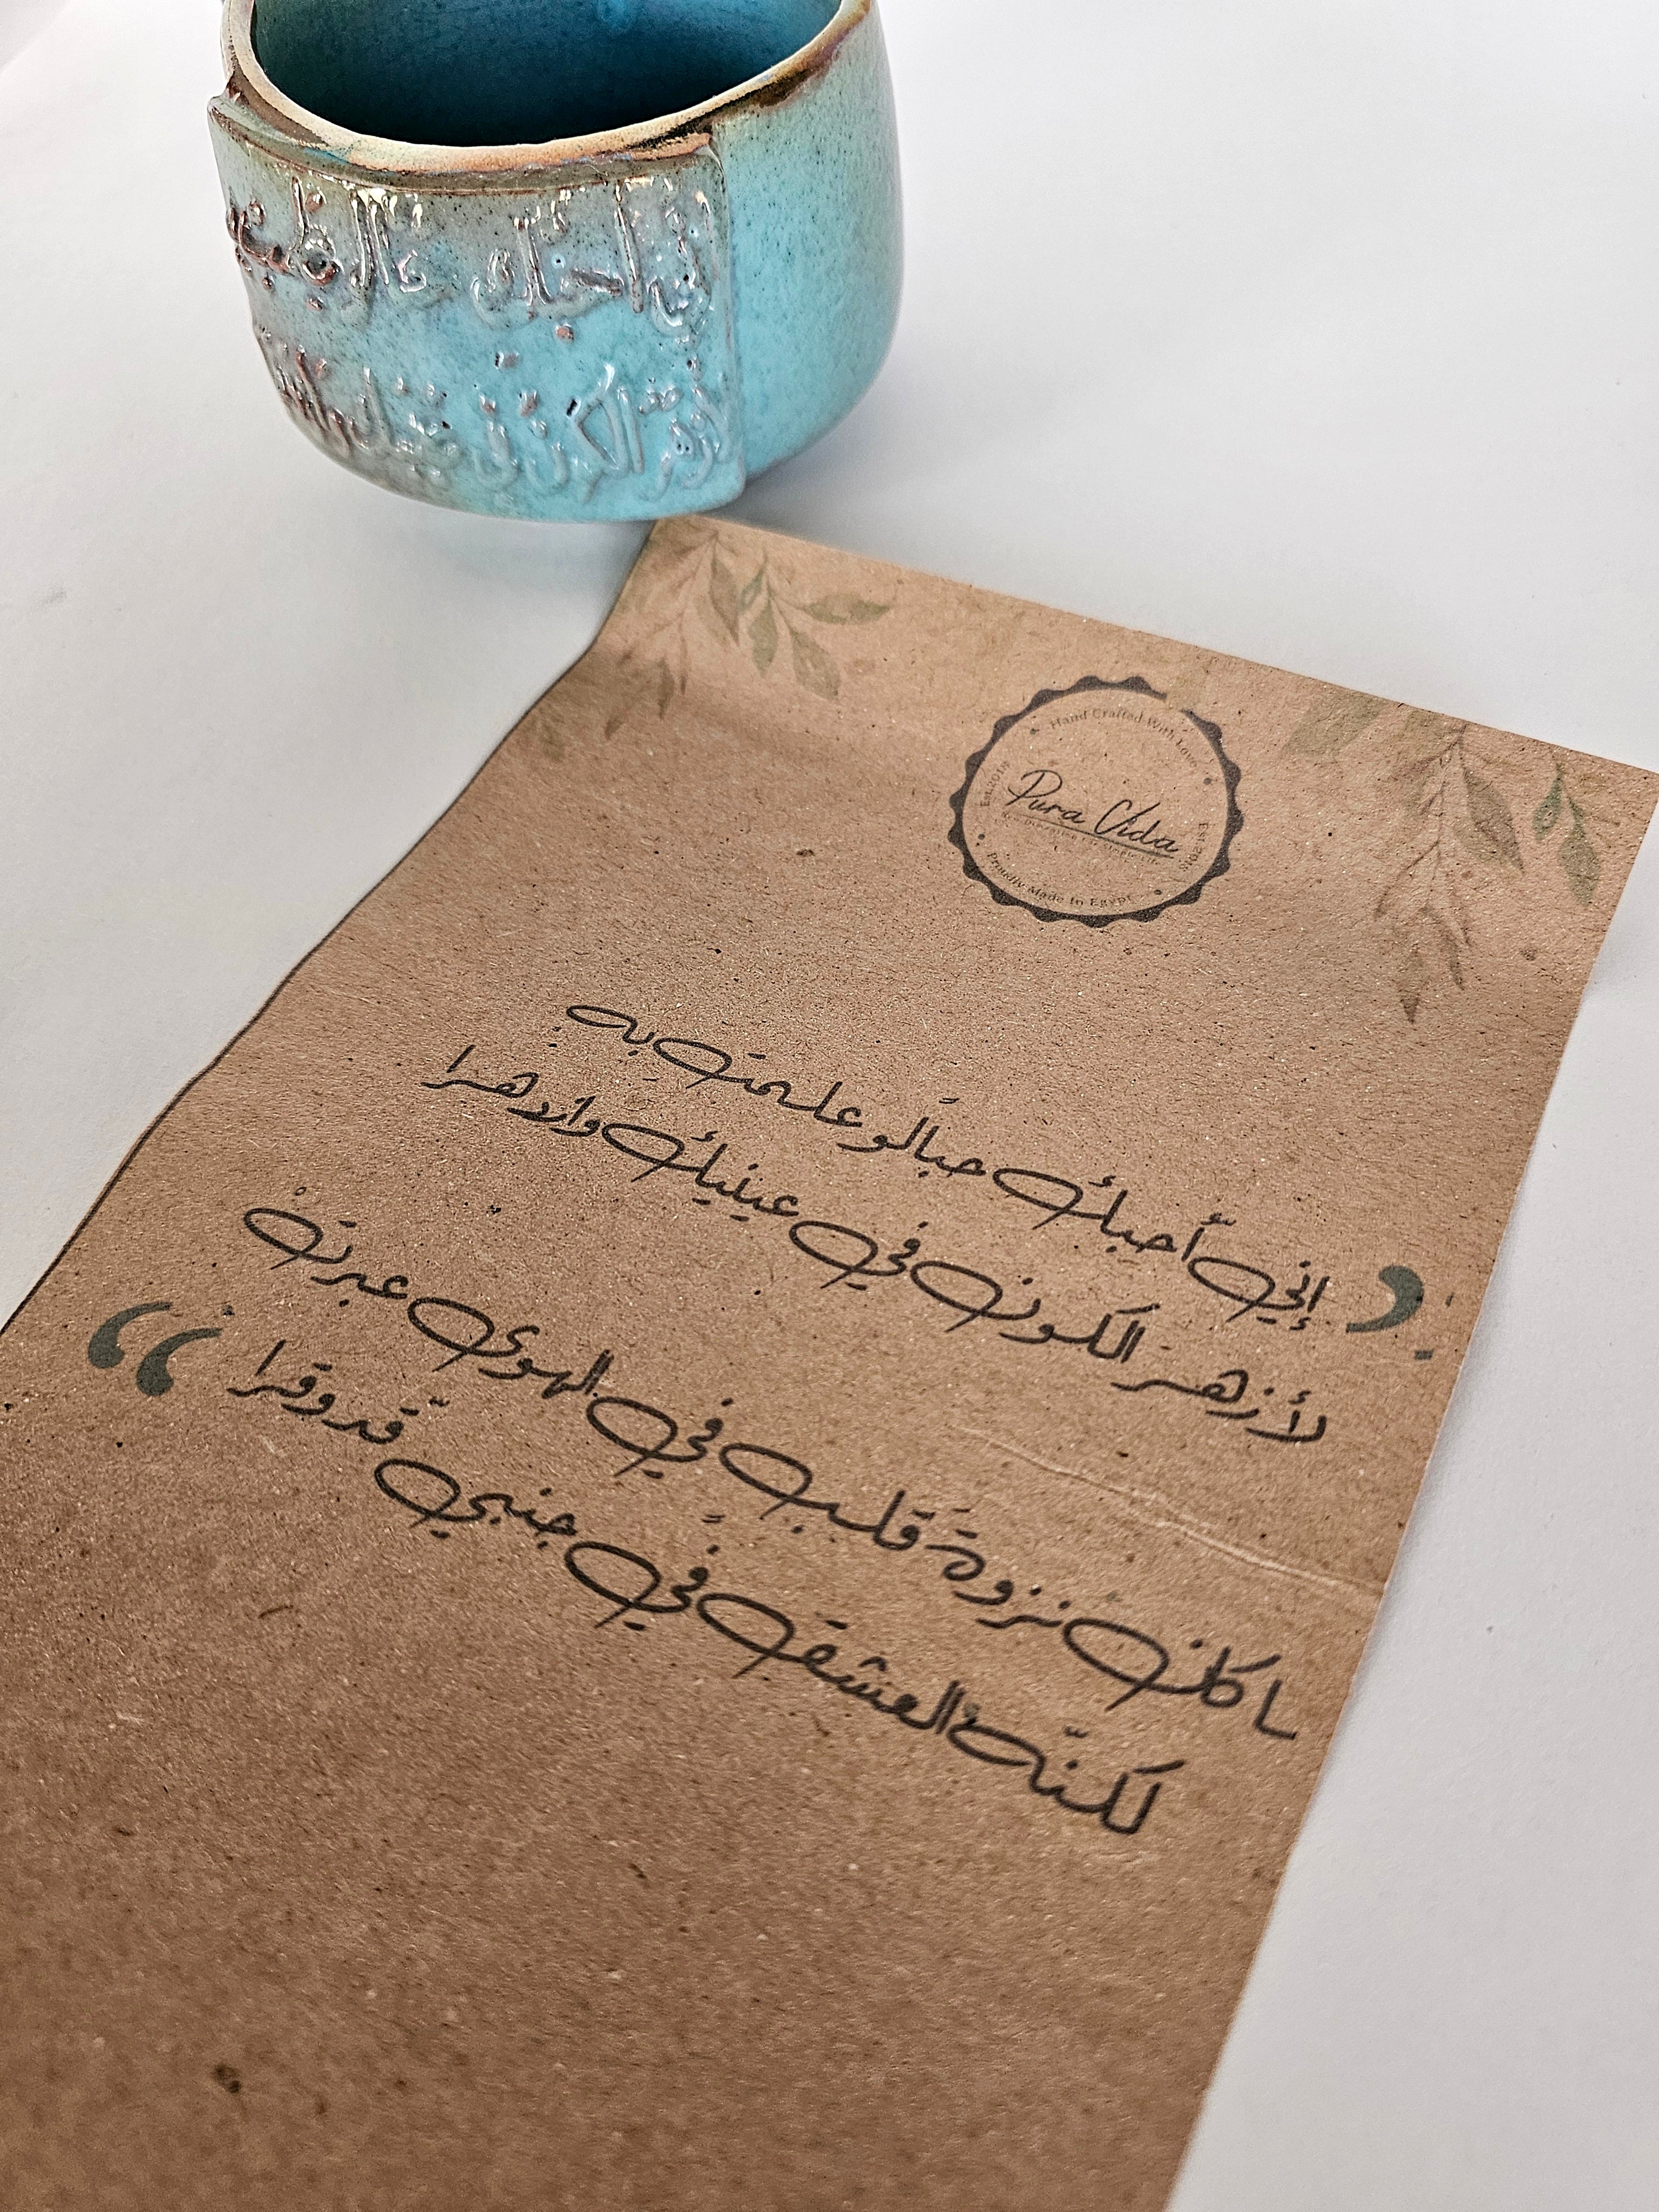 إني أحبك
لأزهر الكون في
Hand Crafted With Love
Est.2018
Pura Vida
Est.2018
Proudly Made In Egypt
إنّي أحبكَ حباً لو علمتَ به
لأزهر الكون في عينيكَ وأزدهرا
ما كان نزوةَ قلبٍ في الهوى عبرتْ
لكنّهُ العشقُ في جنبي قدّ وقرا